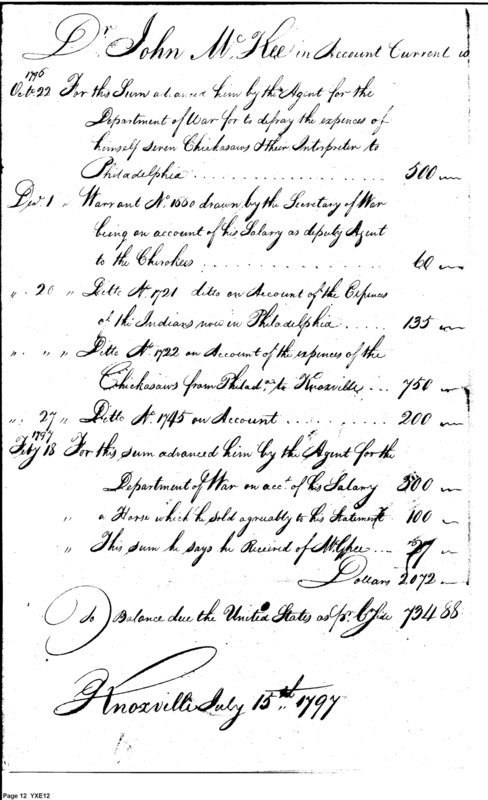 Dr. John McKee in Account Current w
1796
Octr. 22 For this Sum advanced him by the Agent for the
Department of War for to defray the expences of
himself seven Chickasaws & their Interpreter to
Philadelphia . . . . . . . . . . . . 500 —
Decr. 1 " Warrant No. 1660 drawn by the Secretary of War
being on account of his Salary as deputy Agent
to the Cherokees . . . . . . . . . . . . 60 —
". 20 " Ditto No. 1721 ditto on Account of the Expences
of the Indians now in Philadelphia . . . . . 135 —
". " " Ditto No. 1722 on Account of the expences of the
Chickasaws from Philada. to Knoxville . . . 750 —
". 27 " Ditto No. 1745 on Account . . . . . . 200 —
1797
Feby 18 For this sum advanced him by the Agent for the
Department of War on acct. of his Salary 300 —
" a Horse which he sold agreuably to his Statement 100 —
" This sum he says he Received of McGhee . . . 27 —
Dollars 2072 —
To Balance due the United States as pr. 734 88
Knoxville July 15th. 1797
Page 12 YXE12